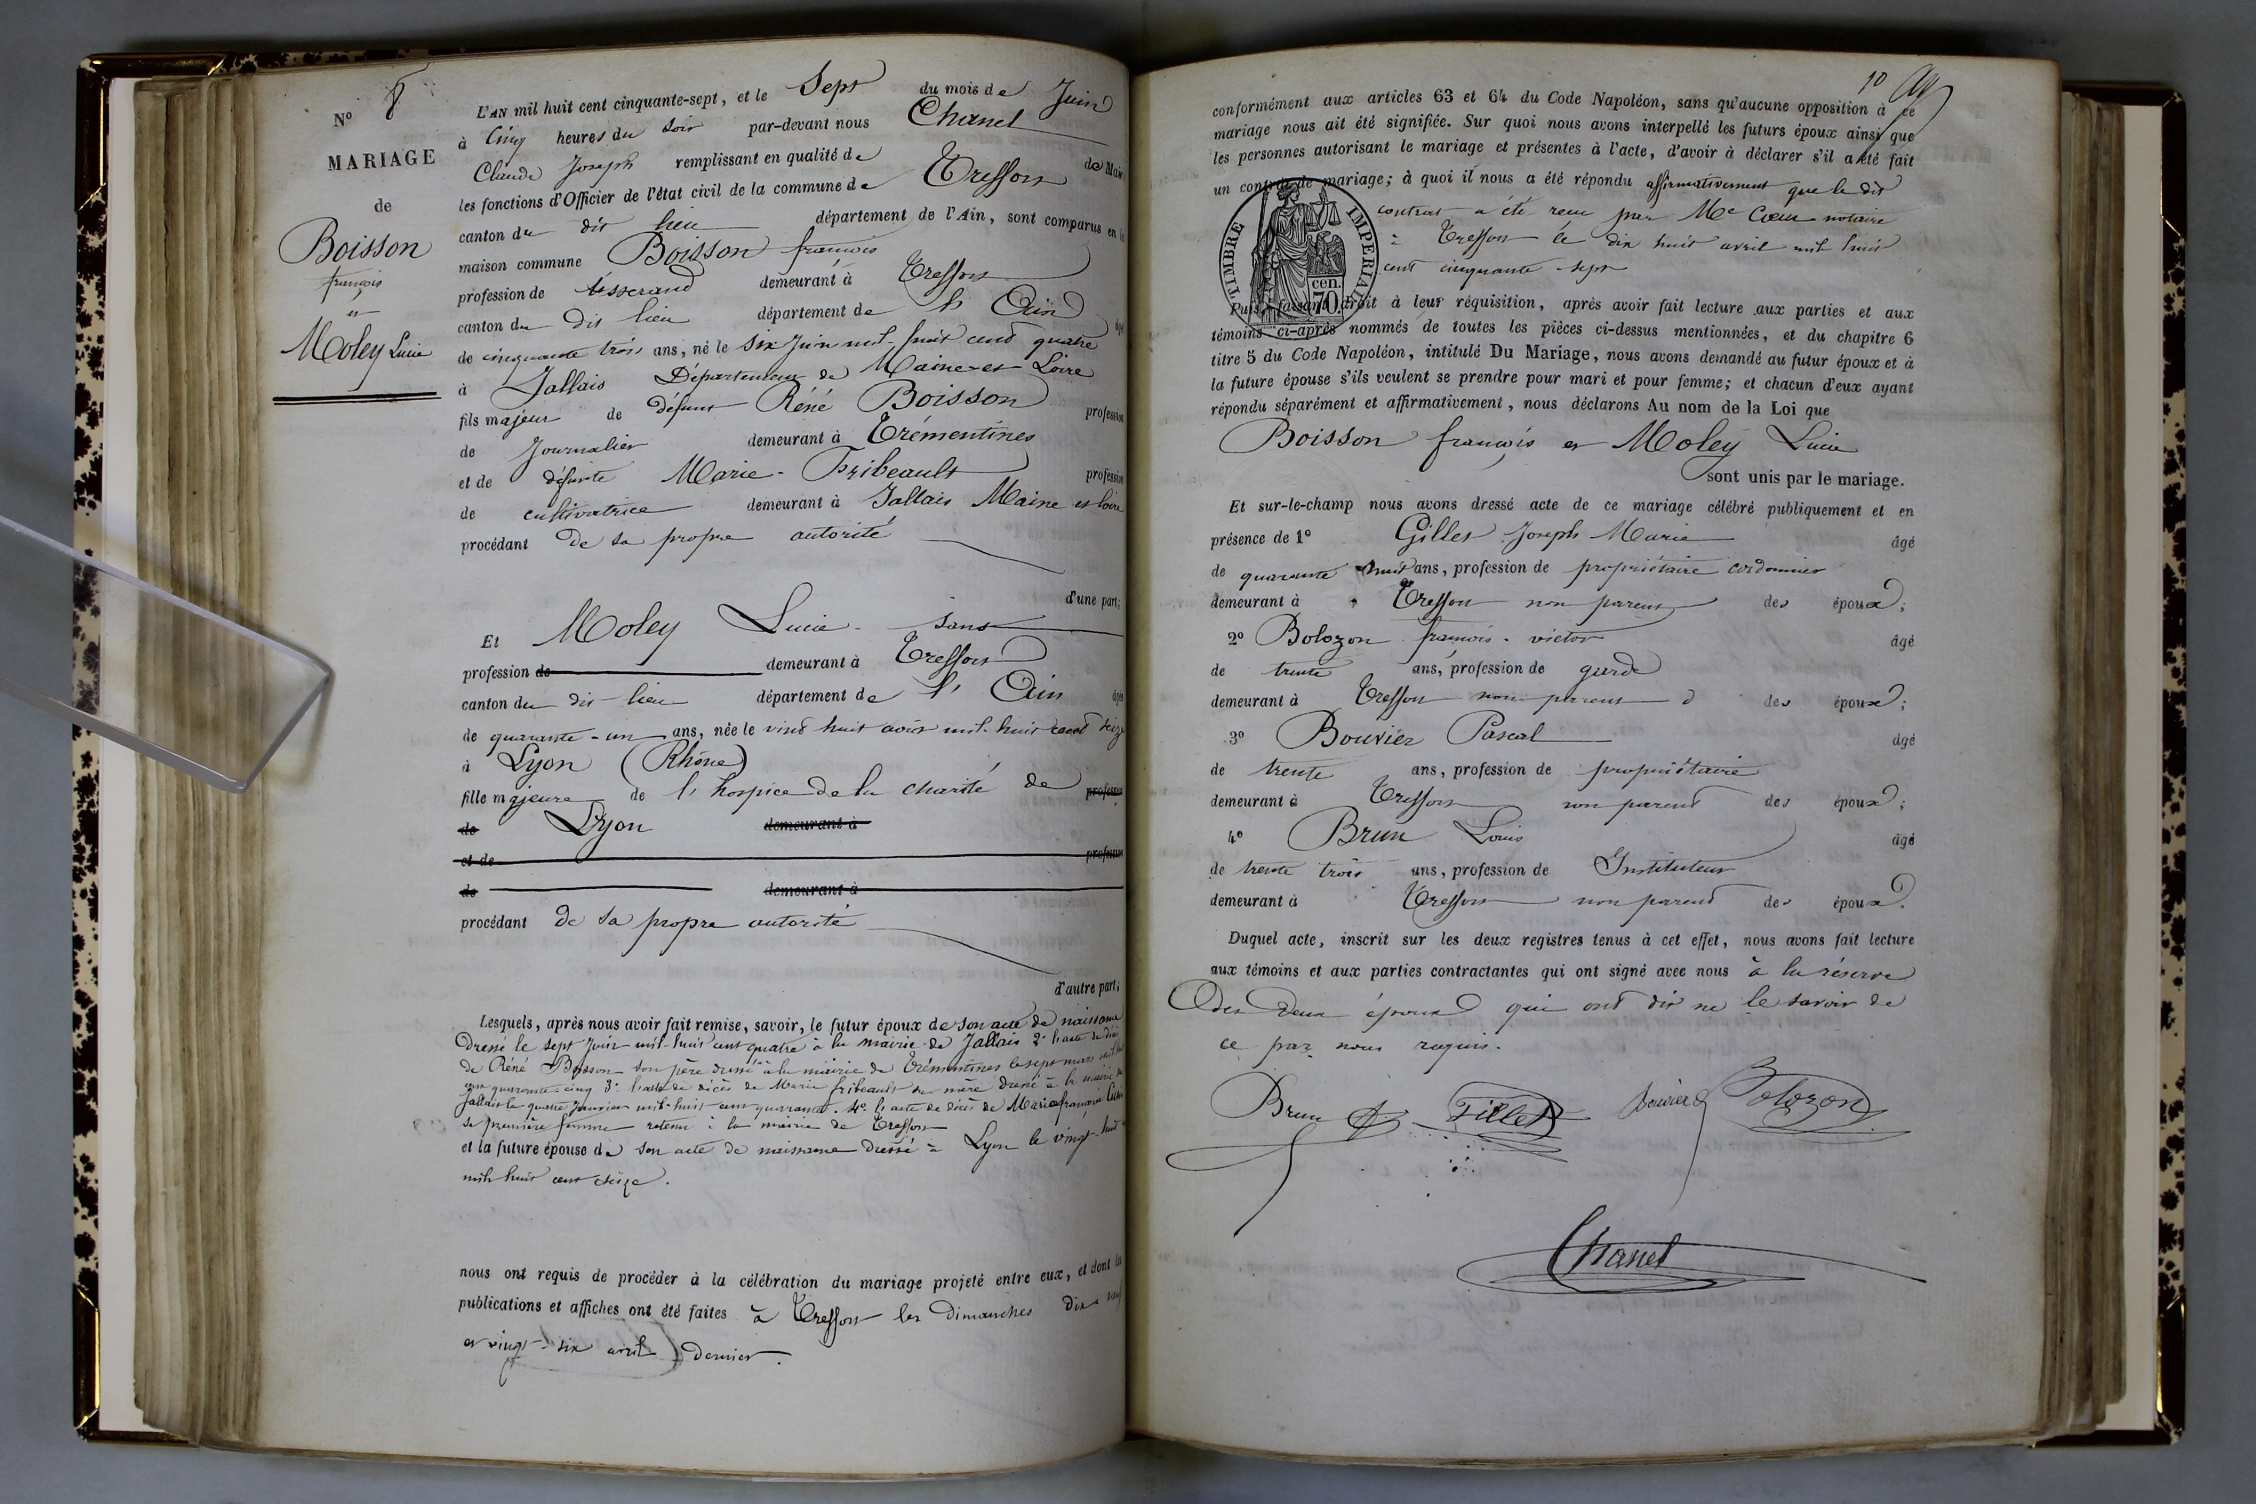 N° 8
MARIAGE
de
Boisson
françois
et
Moley Lucie
L'AN mil huit cent cinquante-sept, et le Sept du mois de Juin
à Cinq heures du soir par-devant nous Chanel
Claude Joseph remplissant en qualité de Maire
les fonctions d'Officier de l'état civil de la commune de Treffort
canton du dit lieu département de l'Ain, sont comparus en la
maison commune Boisson françois
profession de tisserand demeurant à Treffort
canton du dit lieu département de l'Ain âgé
de cinquante trois ans, né le six Juin mil huit cent quatre
à Jallais Département de Maine et Loire
fils majeur de défunt Réné Boisson profession
de Journalier demeurant à Trémentines
et de défunte Marie Fribeault profession
de cultivatrice demeurant à Jallais Maine et Loire
procédant de sa propre autorité
d'une part;
Et Moley Lucie sans
profession de demeurant à Treffort
canton du dit lieu département de l'Ain âgée
de quarante-un ans, née le vint huit août mil huit cent seize
à Lyon (Rhône)
fille majeure de l'hospice de la charité de profession
de Lyon demeurant à
et de profession
de demeurant à
procédant de sa propre autorité
d'autre part;
Lesquels, après nous avoir fait remise, savoir, le futur époux de son acte de naissance
Dressé le sept Juin mil huit cent quatre à la mairie de Jallais 2° l'acte de décès
de Réné Boisson son père dressé à la mairie de Trémentines le sept mars mil huit
cent quarante-cinq 3° l'acte de décès de Marie fribeault sa mère dressé à la mairie de
Jallais le quatre Janvier mil huit cent quarante. 4° l'acte de décès de Marie françoise
sa première femme retenu à la mairie de Treffort
et la future épouse de son acte de naissance dressé à Lyon le vingt-huit
mil huit cent seize.
nous ont requis de procéder à la célébration du mariage projeté entre eux, et dont les
publications et affiches ont été faites à Treffort les Dimanches dix neuf
et vingt-six avril dernier.
10
conformément aux articles 63 et 64 du Code Napoléon, sans qu'aucune opposition à ce
mariage nous ait été signifiée. Sur quoi nous avons interpellé les futurs époux ainsi que
les personnes autorisant le mariage et présentes à l'acte, d'avoir à déclarer s'il a été fait
un contrat de mariage; à quoi il nous a été répondu affirmativement que le dit
contrat a été recu par Me Cœur notaire
à Treffort le dix huit avril mil huit
cent cinquante sept
TIMBRE IMPERIAL
70 cen.
Puis, faisant droit à leur réquisition, après avoir fait lecture aux parties et aux
témoins ci-après nommés de toutes les pièces ci-dessus mentionnées, et du chapitre 6
titre 5 du Code Napoléon, intitulé Du Mariage, nous avons demandé au futur époux et à
la future épouse s'ils veulent se prendre pour mari et pour femme; et chacun d'eux ayant
répondu séparément et affirmativement, nous déclarons Au nom de la Loi que
Boisson françois et Moley Lucie
sont unis par le mariage.
Et sur-le-champ nous avons dressé acte de ce mariage célébré publiquement et en
présence de 1° Gillet Joseph Marie âgé
de quarante huit ans, profession de propriétaire cordonnier
demeurant à Treffort non parent des époux;
2° Bolozon françois victor âgé
de trente ans, profession de garde
demeurant à Treffort non parent des époux;
3° Bouvier Pascal âgé
de trente ans, profession de propriétaire
demeurant à Treffort non parent des époux;
4° Brun Louis âgé
de trente trois ans, profession de Instituteur
demeurant à Treffort non parent des époux.
Duquel acte, inscrit sur les deux registres tenus à cet effet, nous avons fait lecture
aux témoins et aux parties contractantes qui ont signé avec nous à la réserve
des deux époux qui ont dit ne le savoir de
ce par nous requis.
Brun Gillet Bouvier Bolozon
Chanel